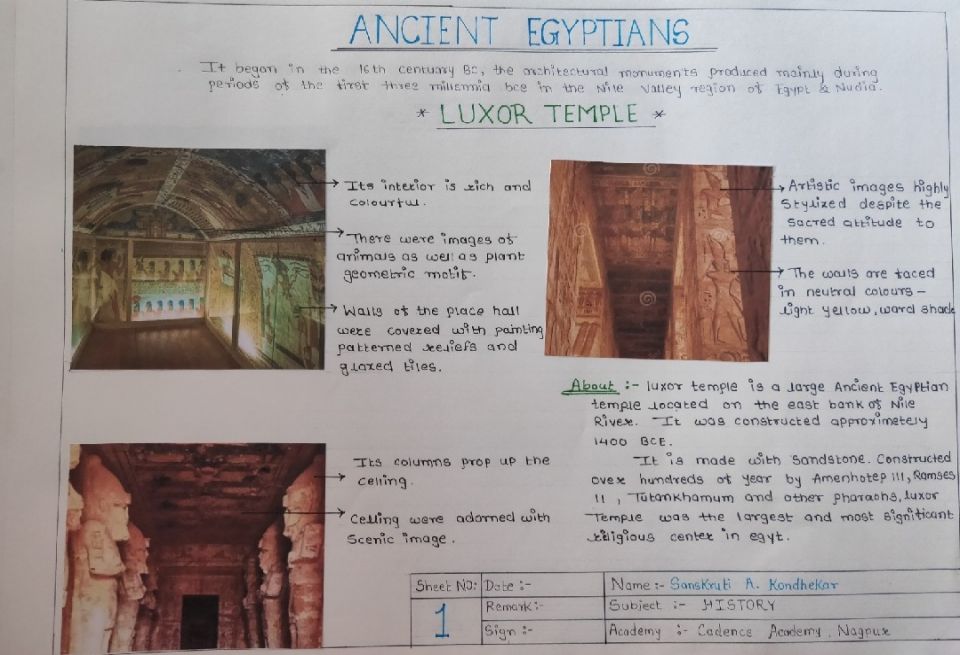 ANCIENT EGYPTIANS
It began in the 16th century BC, the architectural monuments produced mainly during
periods of the first three millennia bce in the Nile Valley region of Egypt & Nudia.
* LUXOR TEMPLE *
Its interior is rich and
colourful.
There were images of
animals as well as plant
geometric motif.
Walls of the place hall
were covered with painting
patterned reliefs and
glaxed tiles.
Artistic images highly
stylized despite the
sacred attitude to
them.
The walls are faced
in neutral colours –
light yellow, ward shade
Its columns prop up the
ceiling.
Ceiling were adorned with
scenic image.
About :- luxor temple is a large Ancient Egyptian
temple located on the east bank of Nile
River. It was constructed approximetely
1400 BCE.
It is made with sandstone. Constructed
over hundreds of year by Amenhotep III, Ramses
II, Tutankhamum and other pharaohs, luxor
Temple was the largest and most significant
religious center in egyt.
Sheet NO: Date :- Name :- Sanskruti A. Kondhekar
1 Remark:- Subject :- HISTORY
Sign :- Academy :- Cadence Academy, Nagpur